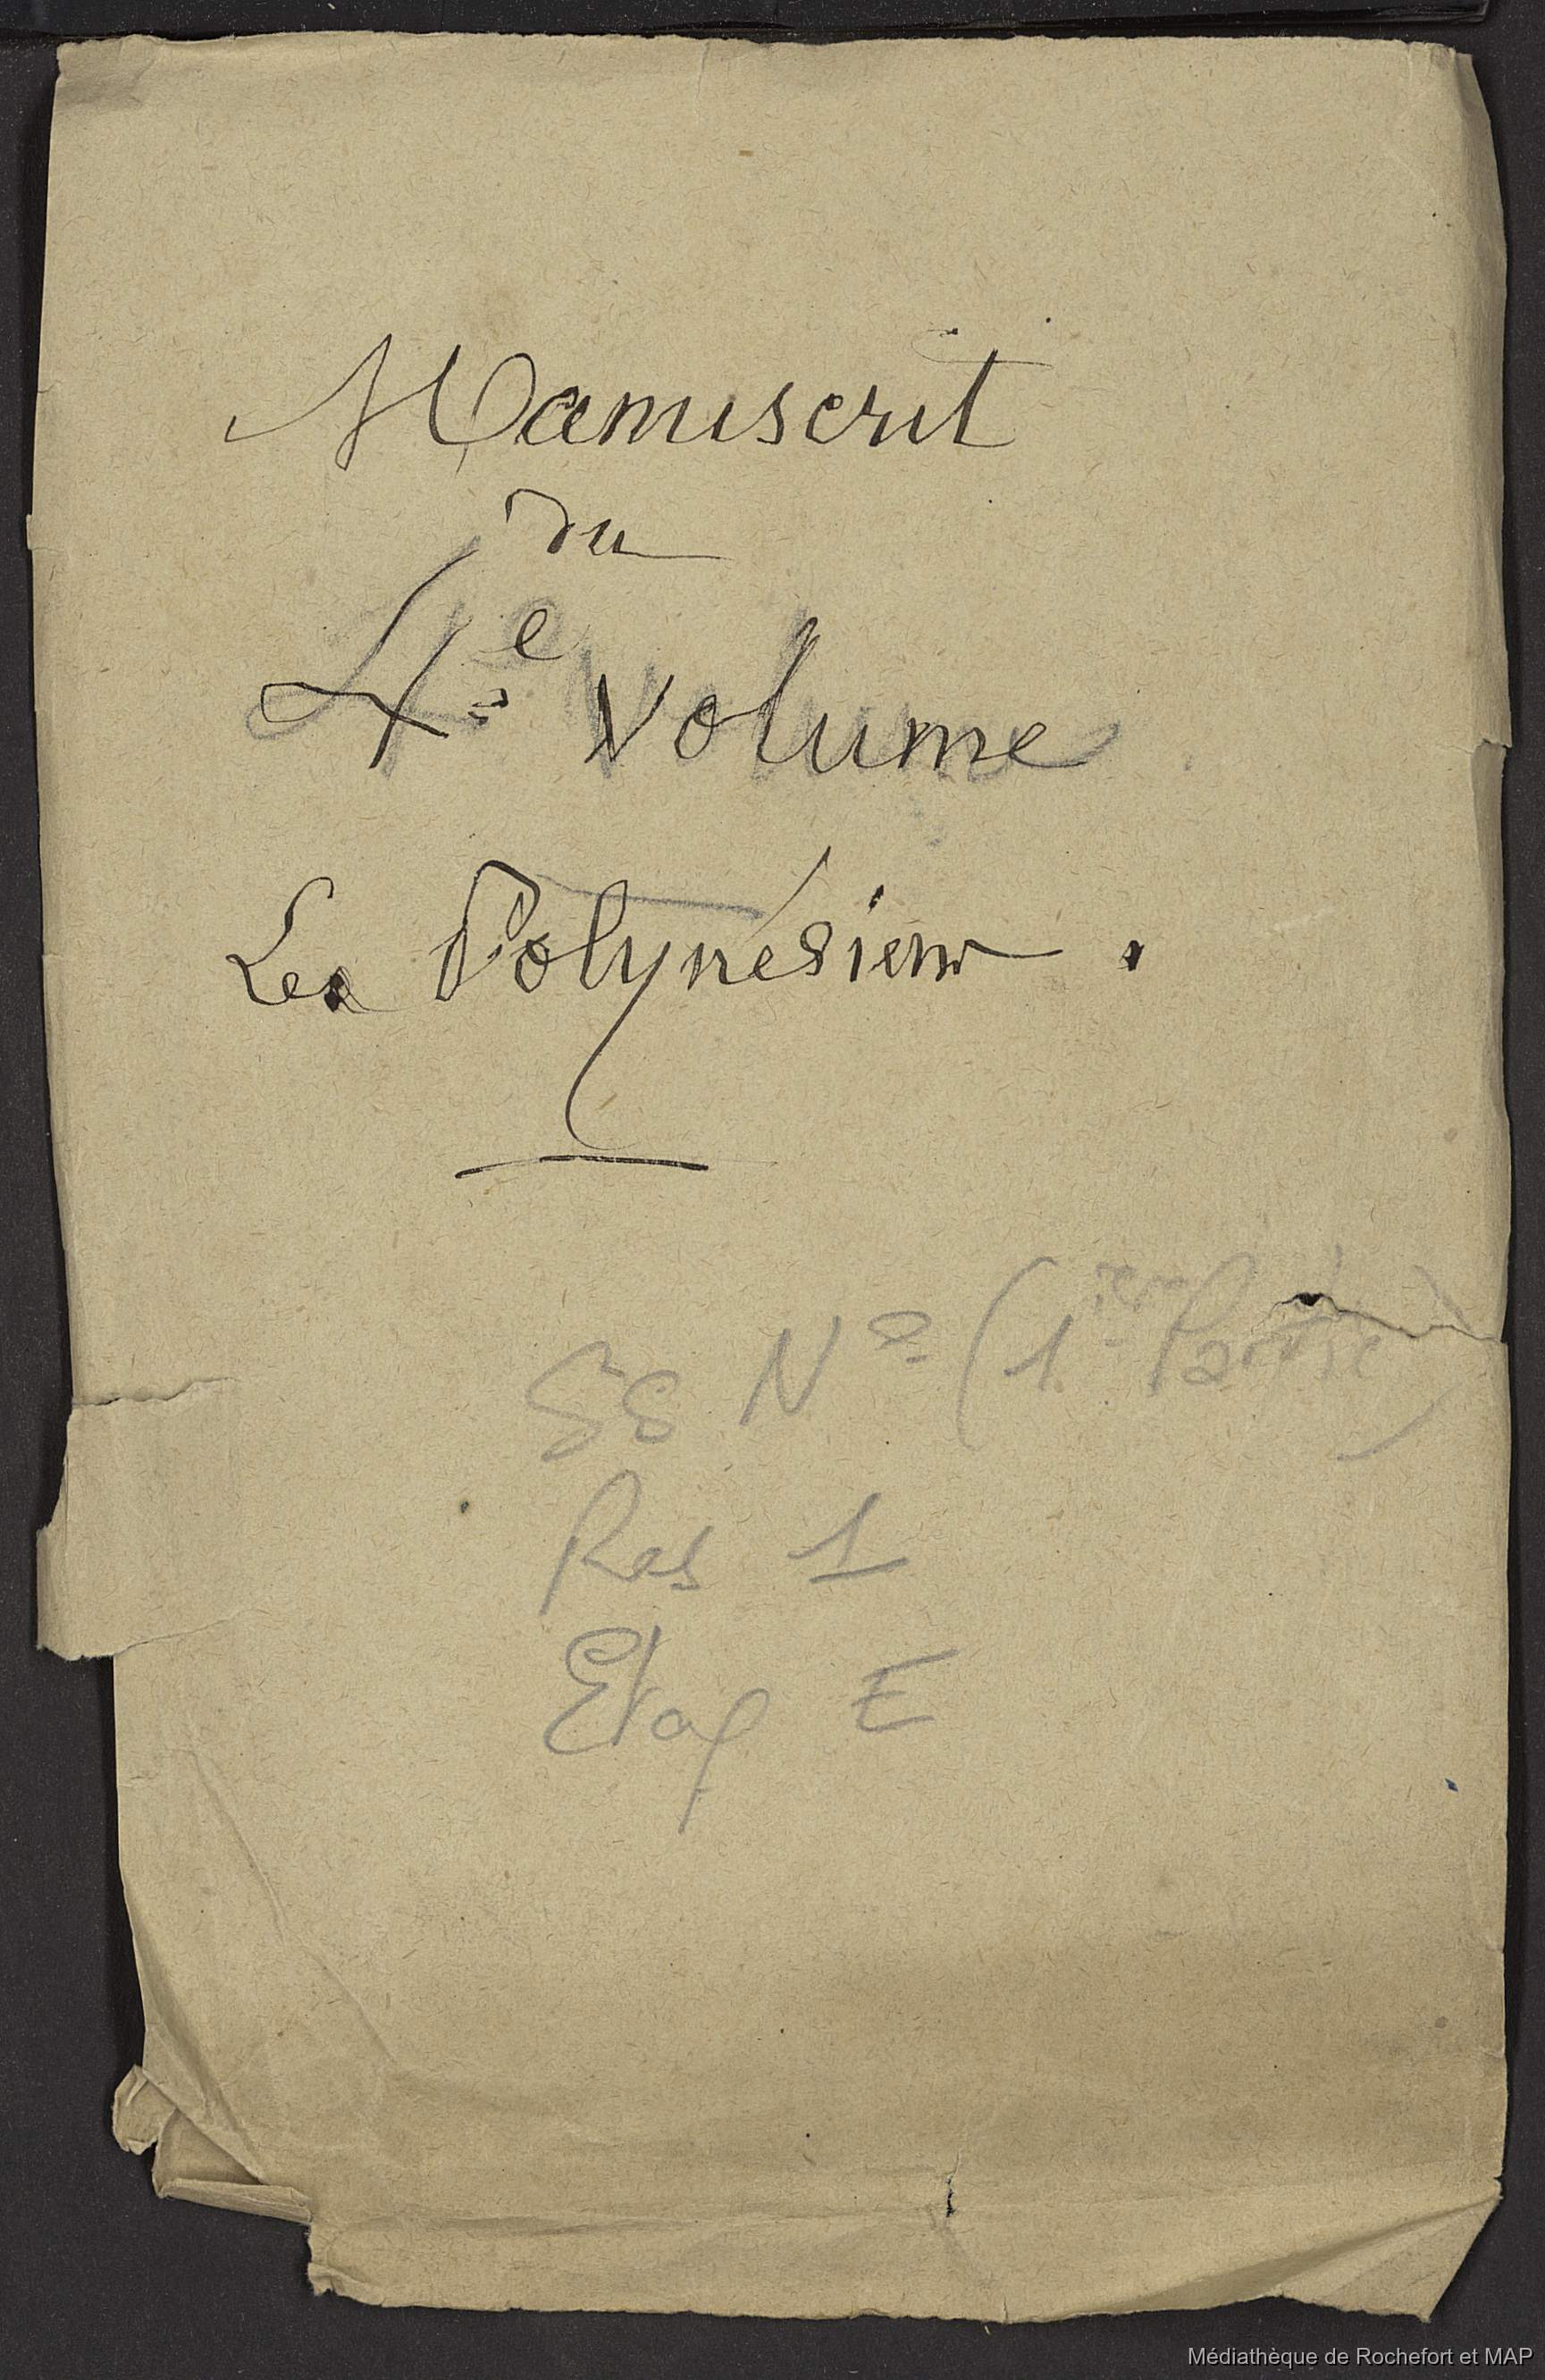 Manuscrit
du
4e volume
Les Polynésiens.
SS N° (1ière Partie)
Ras 1
Etag E
Médiathèque de Rochefort et MAP